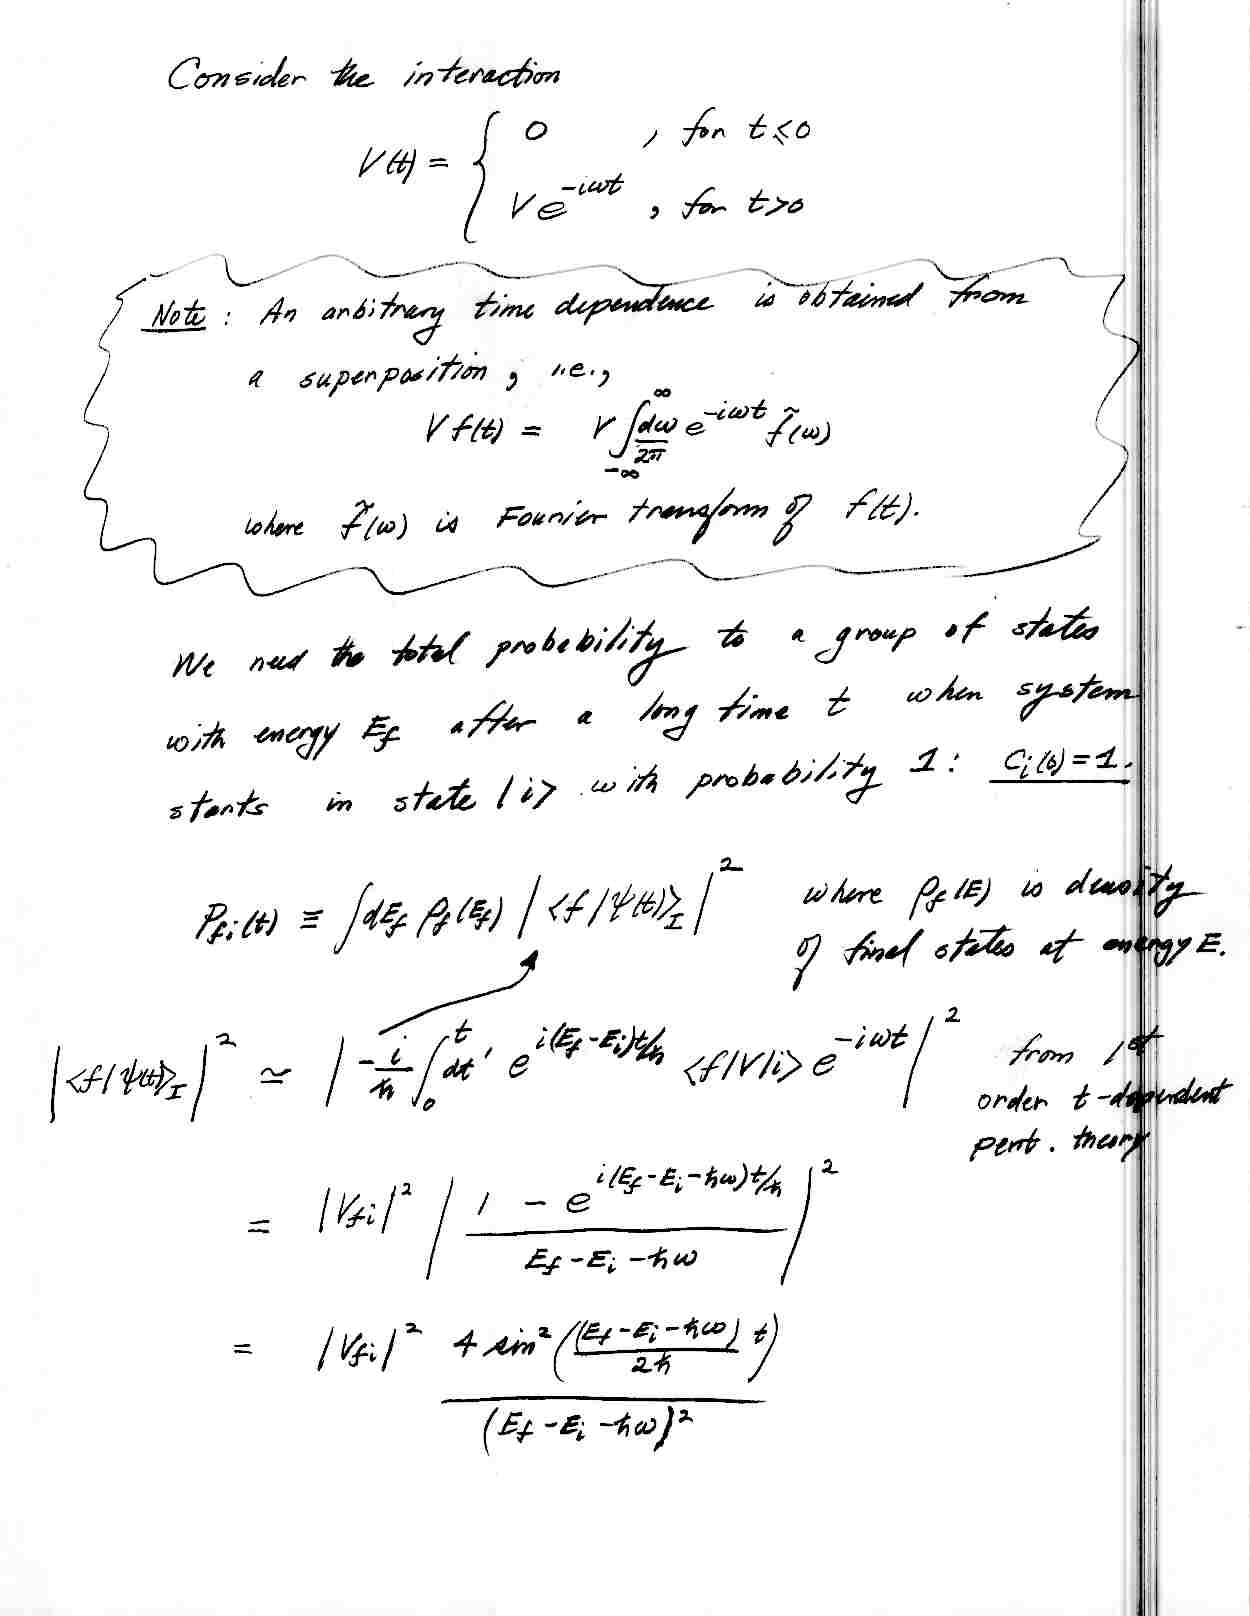 Consider the interaction
V(t) = { 0 , for t ≤ 0
V e^{-iωt} , for t > 0
Note : An arbitrary time dependence is obtained from
a superposition , i.e.,
V f(t) = V ∫_{-∞}^{∞} dω/2π e^{-iωt} f̃(ω)
where f̃(ω) is Fourier transform of f(t).
We need the total probability to a group of states
with energy E_f after a long time t when system
starts in state |i> with probability 1 : C_i(0) = 1.
P_{fi}(t) ≡ ∫ dE_f ρ_f(E_f) | <f|ψ(t)>_I |^2 where ρ_f(E) is density
of final states at energy E.
|<f|ψ(t)>_I|^2 ≃ | -i/ħ ∫_0^t dt' e^{i(E_f-E_i)t/ħ} <f|V|i> e^{-iωt} |^2 from 1st
order t-dependent
pert. theory
= |V_{fi}|^2 | (1 - e^{i(E_f-E_i-ħω)t/ħ}) / (E_f-E_i-ħω) |^2
= |V_{fi}|^2 4 sin^2((E_f-E_i-ħω)/2ħ t) / (E_f-E_i-ħω)^2